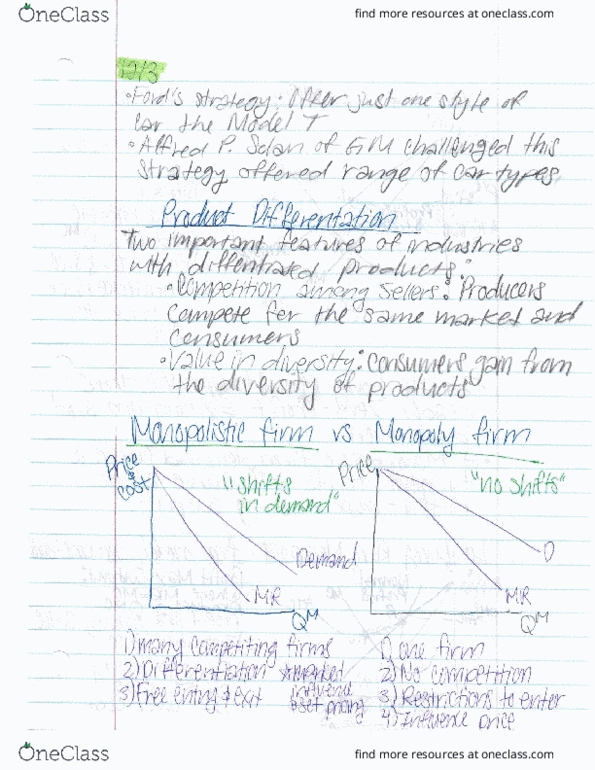 OneClass
find more resources at oneclass.com
12/3
• Ford's strategy: Offer just one style of
car the Model T
• Alfred P. Sloan of GM challenged this
strategy offered range of car types
Product Differentation
Two important features of industries
with diffentrated products:
• Competition among sellers: Producers
compete for the same market and
consumers
• Value in diversity: consumers gain from
the diversity of products
Monopolistic firm vs Monopoly firm
Price & cost
"shifts in demand"
Demand
MR
QM
Price
"no shifts"
D
MR
QM
1) many competiting firms
2) Differentiation
3) Free entry & exit
* market influence & set pricing
1) one firm
2) No competition
3) Restrictions to enter
4) Influence price
OneClass
find more resources at oneclass.com